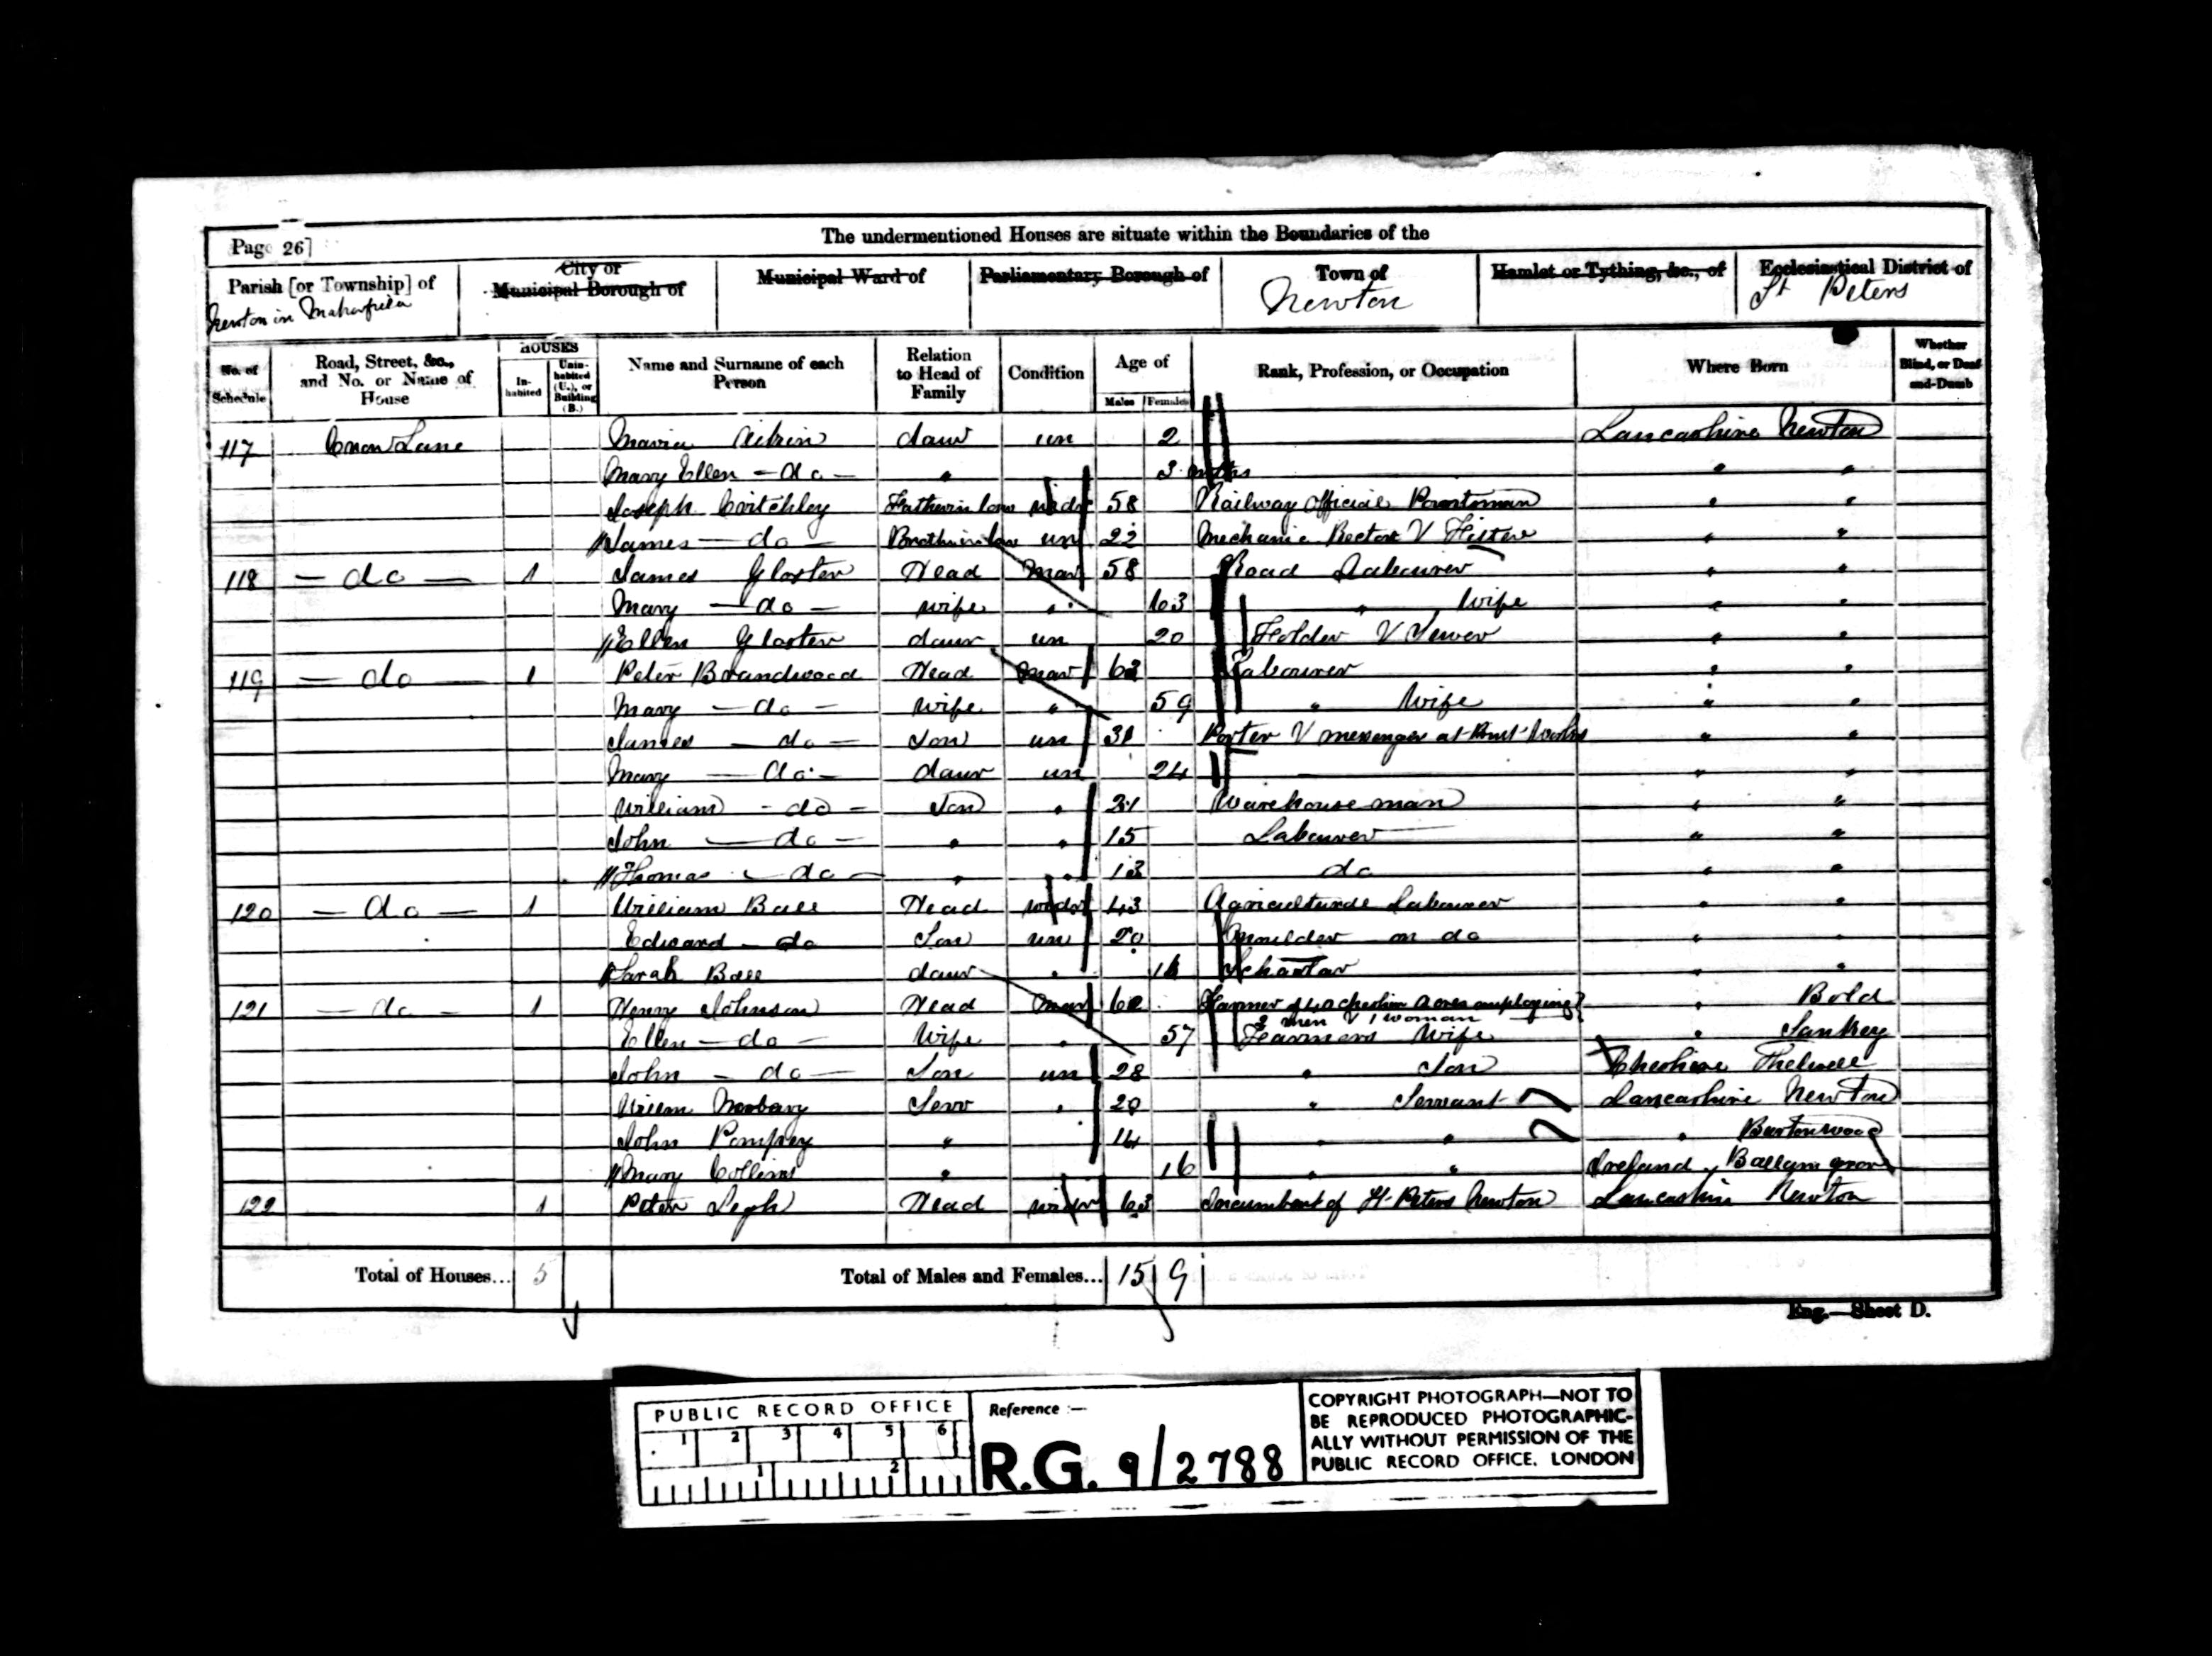 The undermentioned Houses are situate within the Boundaries of the
Page 26]
Parish [or Township] of
Newton in Makerfield
City or Municipal Borough of
Municipal Ward of
Parliamentary Borough of
Town of
Newton
Hamlet or Tything, &c., of
Ecclesiastical District of
St Peters
No. of Schedule
Road, Street, &c., and No. or Name of House
HOUSES
In-habited
Unin-habited (U.), or Building (B.)
Name and Surname of each Person
Relation to Head of Family
Condition
Age of
Males
Females
Rank, Profession, or Occupation
Where Born
Whether Blind, or Deaf-and-Dumb
117 Crow Lane Maria daur un 2 Lancashire Newton
Mary Ellen - do - " 3 mths " "
Joseph Critchley Father in law widr 58 Railway official Pointsman " "
James - do - Brother in law un 22 Mechanic V Fitter " "
118 - do - 1 James Gloster Head Mar 58 Road Labourer " "
Mary - do - wife " 63 " Wife " "
Ellen Gloster daur un 20 Folder V Sewer " "
119 - do - 1 Peter Brandwood Head Mar 63 Labourer " "
Mary - do - wife " 59 " Wife " "
James - do - Son un 31 Porter V messenger at Works " "
Mary - do - daur un 24 " "
William - do - Son " 21 Warehouse man " "
John - do - " " 15 Labourer " "
Thomas - do - " " 13 do " "
120 - do - 1 William Ball Head widr 43 Agricultural Labourer " "
Edward - do Son un 20 Moulder do " "
Sarah Ball daur " 16 Scholar " "
121 - do - 1 Henry Johnson Head Mar 62 Farmer of acres employing " Bold
2 men V 1 woman
Ellen - do - Wife " 57 Farmers Wife " Sankey
John - do - Son un 28 " Son Cheshire Thelwall
Willm Norbary Serv " 20 " Servant Lancashire Newton
John Pomfrey " 14 " " " Burtonwood
Mary Collins " 16 " " Ireland
122 1 Peter Legh Head widr 63 Incumbent of St Peters Newton Lancashire Newton
Total of Houses... 5
Total of Males and Females... 15 9
Eng.—Sheet D.
PUBLIC RECORD OFFICE
1 2 3 4 5 6
1 2
Reference :-
R.G. 9/2788
COPYRIGHT PHOTOGRAPH—NOT TO
BE REPRODUCED PHOTOGRAPHIC-
ALLY WITHOUT PERMISSION OF THE
PUBLIC RECORD OFFICE, LONDON